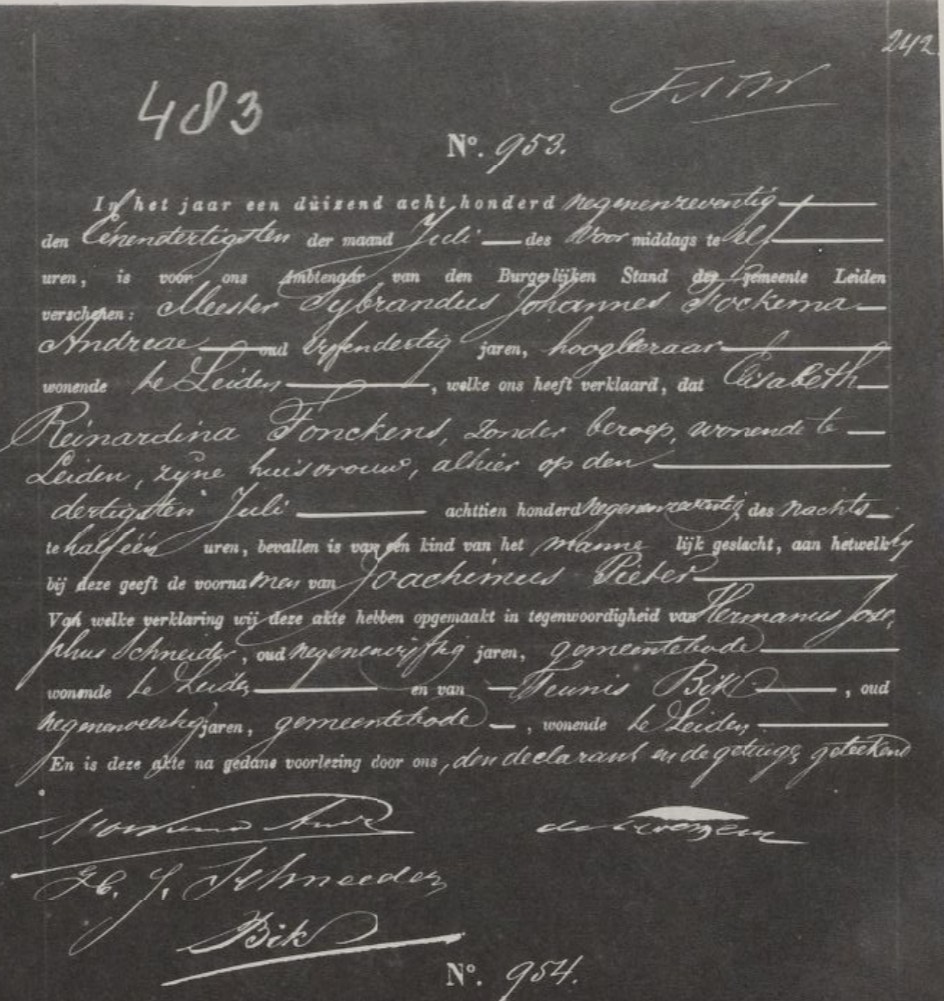 242
483
N°. 953.
In het jaar een duizend acht honderd negenenzeventig
den Eenendertigsten der maand Juli des Voormiddags te elf
uren, is voor ons Ambtenaar van den Burgerlijken Stand der gemeente Leiden
verschenen: Meester Sybrandus Johannes Fockema
Andreae oud vyfendertig jaren, hoogleeraar
wonende te Leiden, welke ons heeft verklaard, dat Elisabeth
Reinardina Fonckens, zonder beroep, wonende te
Leiden, zyne huisvrouw, alhier op den
dertigsten Juli achttien honderd negenenzeventig des nachts
te half één uren, bevallen is van een kind van het mannelijk geslacht, aan hetwelk hy
bij deze geeft de voornamen van Joachimus Pieter
Van welke verklaring wij deze akte hebben opgemaakt in tegenwoordigheid van Hermanus Jose,
phus Schneider, oud negenenvijftig jaren, gemeentebode
wonende te Leiden en van Teunis Bik, oud
negenenveertig jaren, gemeentebode, wonende te Leiden
En is deze akte na gedane voorlezing door ons, den declarant en de getuigen geteekend
H. J. Schneider
Bik
N°. 954.